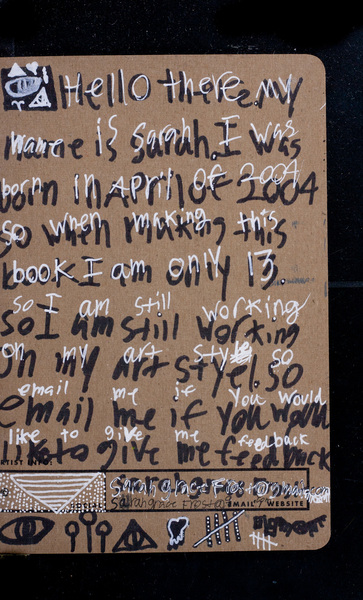 Hello there my
name is Sarah. I was
born in April of 2004
so when making this
book I am only 13
so I am still working
on my art style. so
email me if you would
like to give me feedback
ARTIST INFO:
EMAIL / WEBSITE